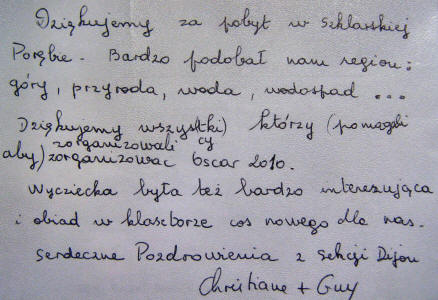 Dziękujemy za pobyt w Szklarskiej
Porębie. Bardzo podobał nam region:
góry, przyroda, woda, wodospad ...
Dziękujemy wszystki) którzy (pomagali
zorganizowali cy
aby) zorganizowac Oscar 2010.
Wycziecka była też bardzo interezująca
i obiad w klasztorze cos nowego dla nas.
serdeczne Pozdrowienia z sekcji Dijon
Christiane + Guy